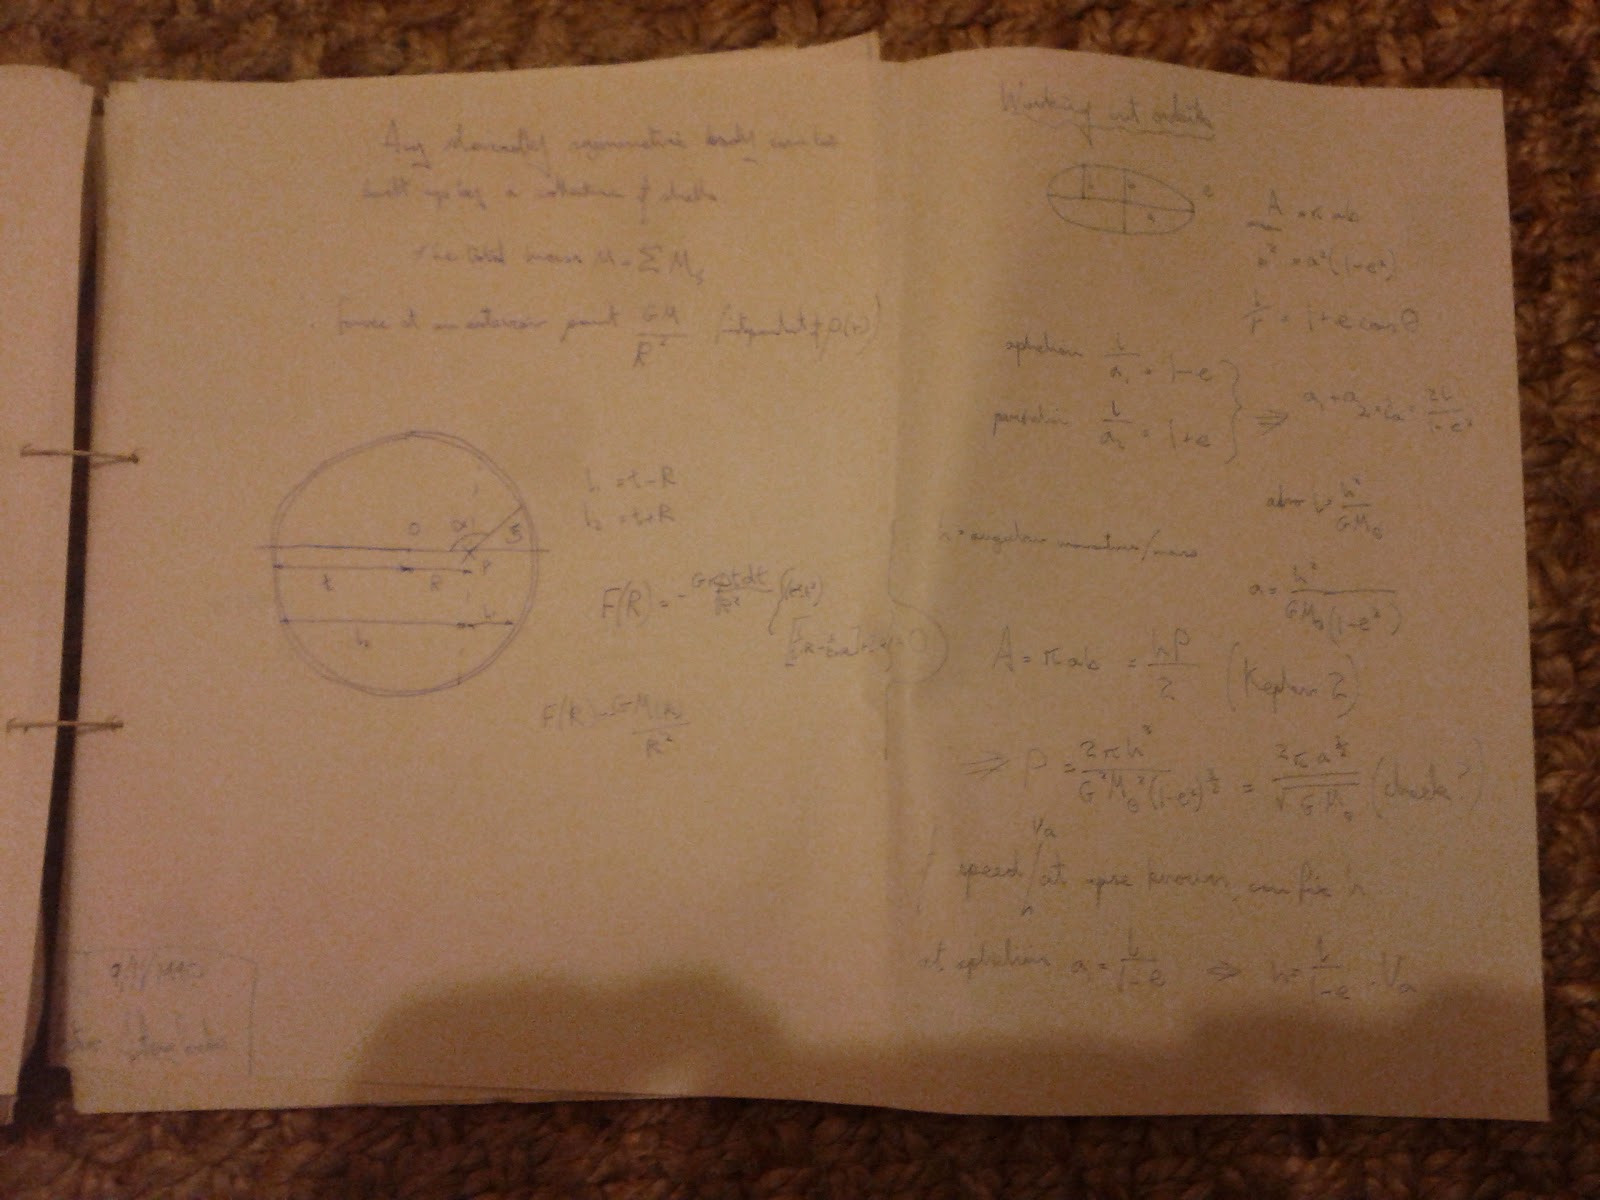 Any spherically symmetric body can be
built up by a collection of shells
the total mass M = Σ M_s
∴ force at an exterior point GM/R² (independent of ρ(r))
O α ξ
t R P
l₂ l₁
l₁ = t-R
l₂ = t+R
F(R) = -
F(R) = - GM(R)/R²
1990
Working out orbits
l b a e
A = πab
b² = a²(1-e²)
l/r = 1+e cos θ
aphelion l/a₁ = 1-e
perihelion l/a₂ = 1+e
⇒ a₁+a₂ = 2a = 2l/1-e²
also l = h²/GM₀
h = angular momentum/mass
a = h²/GM₀(1-e²)
A = πab = hP/2 (Kepler 2)
⇒ P = 2πh³/G²M₀²(1-e²)^3/2 = 2πa^3/2/√GM₀ (check?)
If speed V_a at apse known, can fix h
at aphelion a₁ = l/1-e ⇒ h = l/1-e · V_a